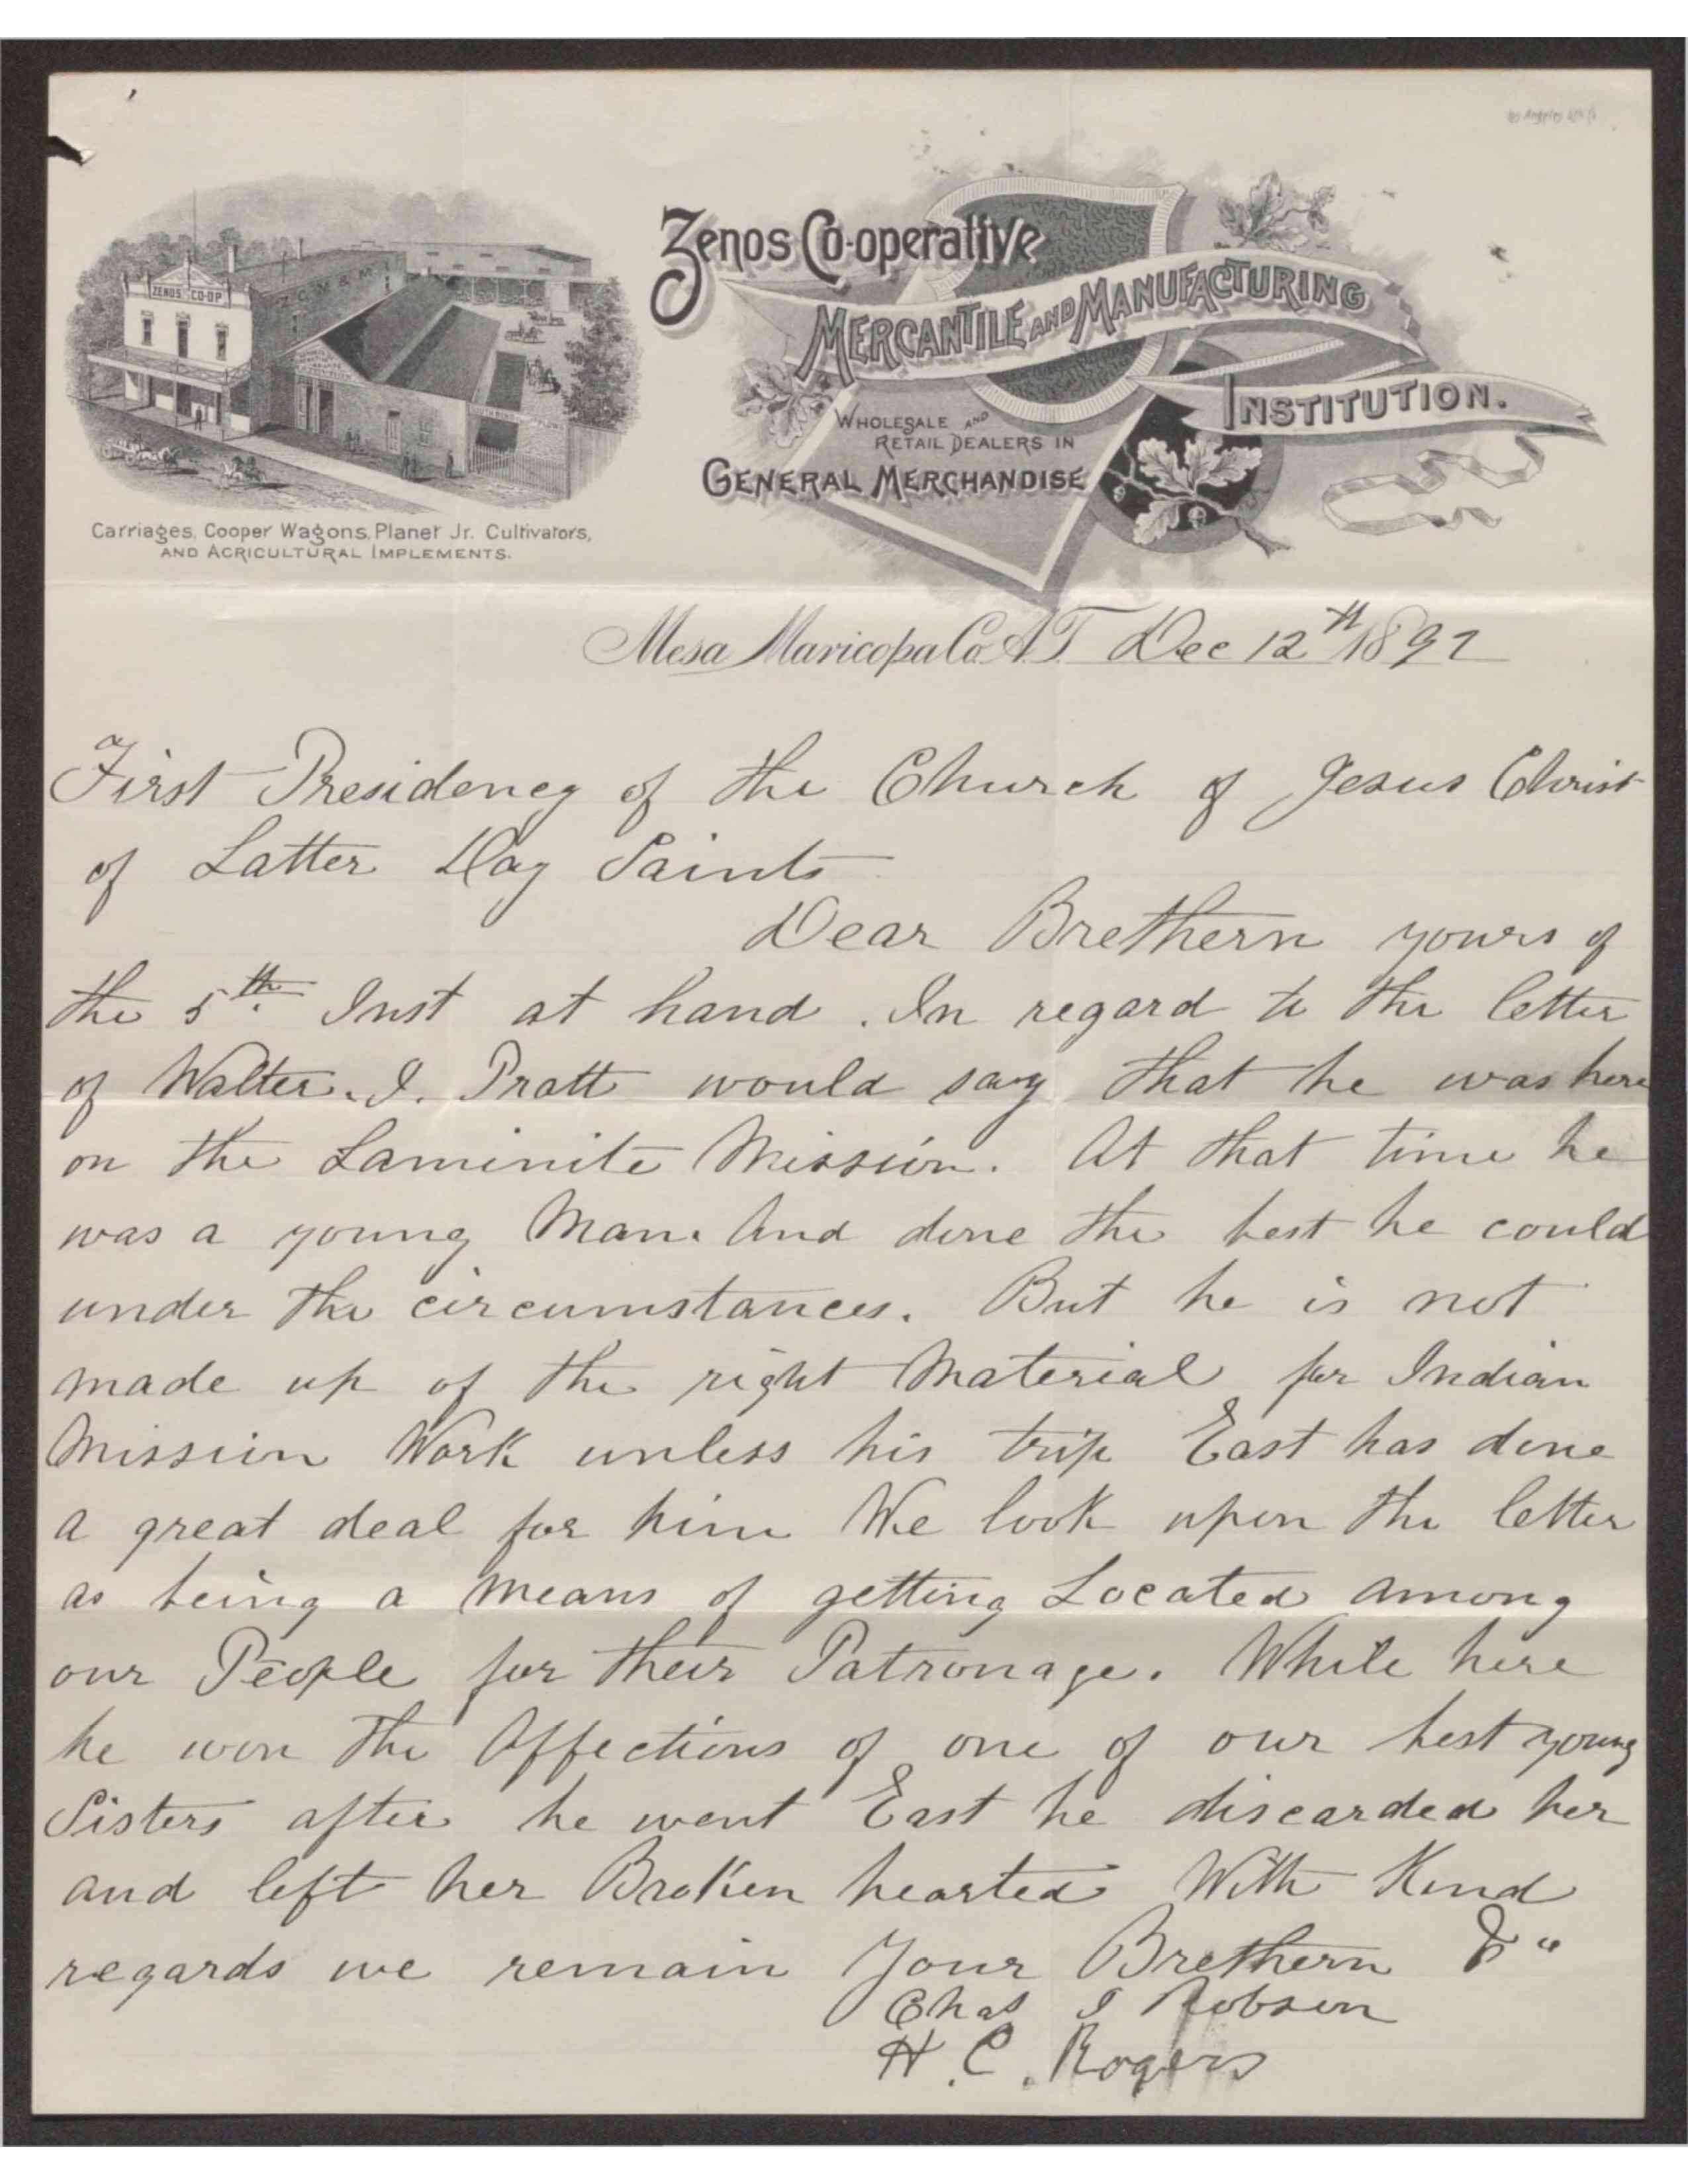 ZENOS CO-OP
Z.C.M. & M.I.
Zenos Co-operative
MERCANTILE AND MANUFACTURING
INSTITUTION.
WHOLESALE AND
RETAIL DEALERS IN
GENERAL MERCHANDISE
Carriages, Cooper Wagons, Planet Jr. Cultivators,
AND AGRICULTURAL IMPLEMENTS.
Mesa Maricopa Co. A.T. Dec 12th 1892
First Presidency of the Church of Jesus Christ
of Latter Day Saints
Dear Brethern yours of
the 5th Inst at hand. In regard to the letter
of Walter. I. Pratt would say that he was here
on the Laminite Mission. At that time he
was a young Man. And done the best he could
under the circumstances. But he is not
made up of the right Material for Indian
Mission Work unless his trip East has done
a great deal for him We look upon the letter
as being a means of getting Located among
our People for their Patronage. While here
he won the Affections of one of our best young
Sisters after he went East he discarded her
and left her Broken hearted With Kind
regards we remain Your Brethern &"
Chas I Robson
H. C. Rogers